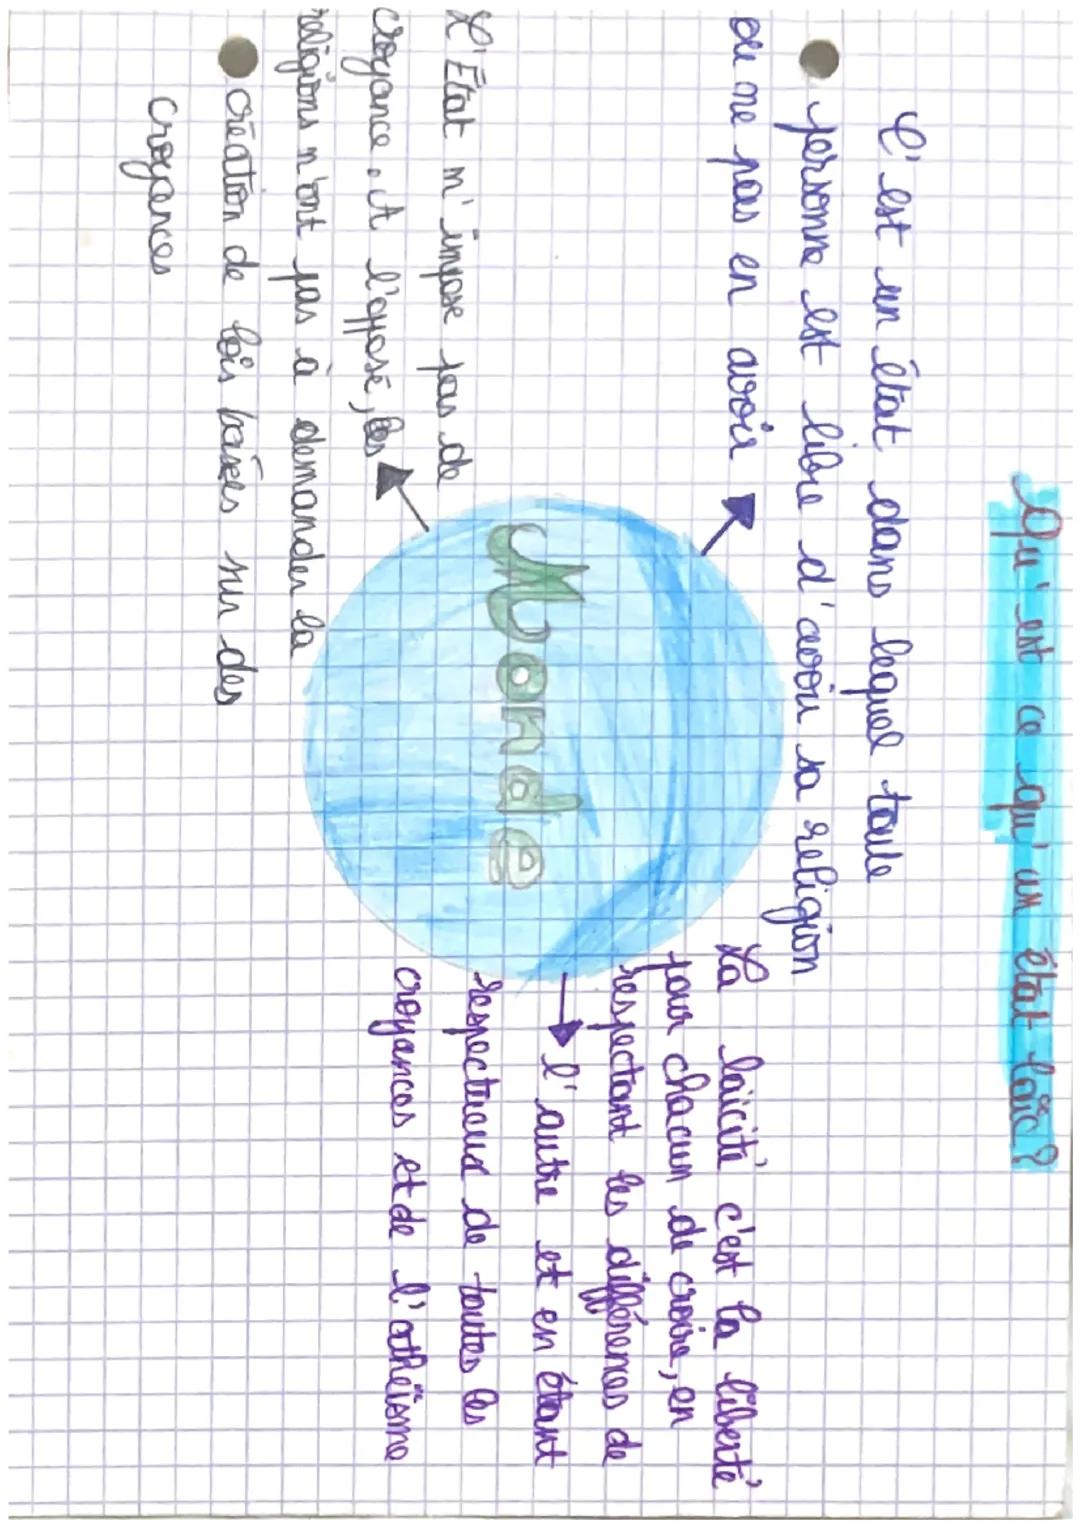 Qu'est ce qu'un état laïc?
C'est un état dans lequel toute
personne est libre d'avoir sa religion
ou ne pas en avoir
Monde
L'État n'impose pas de
croyance. A l'opposé, les
religions n'ont pas à demander la
création de lois basées sur des
croyances
La laïcité c'est la liberté
pour chacun de croire, en
respectant les différences de
l'autre et en étant
respectueux de toutes les
croyances et de l'athéïsme